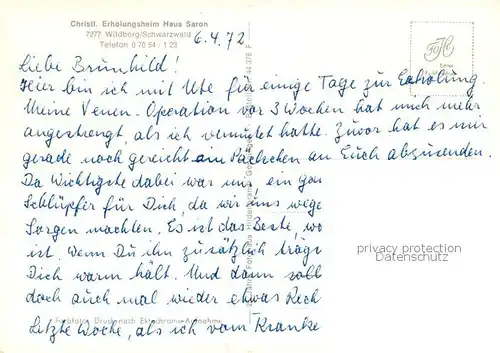 Christl. Erholungsheim Haus Saron
7277 Wildberg/Schwarzwald
Telefon 0 70 54 / 1 23
6.4.72
Liebe Brunhild!
Hier bin ich mit Ute für einige Tage zur Erholung.
Meine Venen-Operation vor 3 Wochen hat mich mehr
angestrengt, als ich vermutet hatte. Zuvor hat es mir
gerade noch gereicht ein Päckchen an Euch abzusenden.
Da Wichtigste dabei war uns, ein
Schlüpfer für Dich, da wir uns wege
Sorgen machten. Es ist das Beste, wo
ist. Wenn Du ihn zusätzlich trägs
Dich warm hält. Und dann soll
doch auch mal wieder etwas Rech
Letzte Woche, als ich vom Kranke
Farbfoto: Druck nach Ektachrome-Aufnahme
privacy protection
Datenschutz